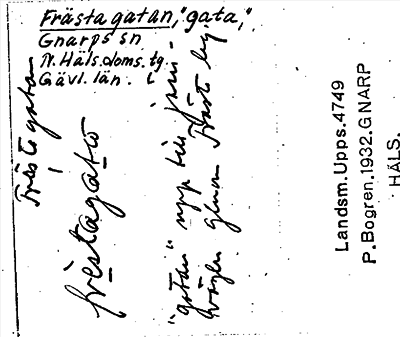 Frästagatan, "gata,"
Gnarps sn
N. Häls. doms. tg.
Gävl. län.
Frästagatan
frèstagatω
"gatan" upp till järn-
vägen genom Fräst by
Landsm.Upps.4749
P.Bogren.1932.GNARP
HÄLS.